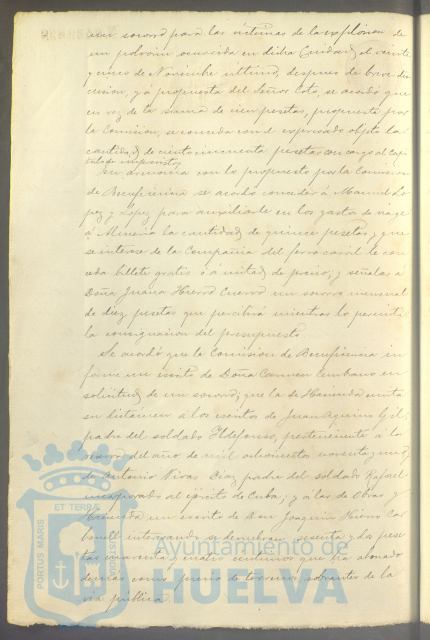 un socorro para las víctimas de la explosion de
un polvorin ocurrida en dicha Ciudad el veinte
y cinco de Noviembre último, despues de breve dis
cusion, y á propuesta del Señor Coto, se acordó que
en vez de la suma de cien pesetas, propuesta por
la Comision, se conceda con el expresado objeto la
cantidad de ciento cincuenta pesetas con cargo al Capi
tulo de imprevistos.
En armonia con lo propuesto por la Comision
de Beneficencia se acordó conceder á Manuel Lo
pez y Lopez para auxiliarle en los gastos de viage
á Almeria la cantidad de quince pesetas, y que
se interese de la Compañia del ferro carril le con
ceda billete gratis ó á mitad de precio; y señalar á
Doña Juana Hierro Cuervo un socorro mensual
de diez pesetas que percibirá mientras lo permita
la consignacion del presupuesto.
Se acordó que la Comision de Beneficencia in
forme un escrito de Doña Carmen Lumbano en
solicitud de un socorro; que la de Hacienda emita
su dictámen á los escritos de Juan Aquino Gil,
padre del soldado Ildefonso, perteneciente á la
reserva del año de mil ochocientos noventa y uno,
de Antonio Rivas Diaz padre del soldado Rafael
incorporado al ejército de Cuba; y á las de Obras y
Hacienda un escrito de Don Joaquin Hierro Car
bonell interesando se devuelvan sesenta y dos pese
tas cuarenta y cuatro centimos que ha abonado
demas como precio de terreno, sobrantes de la
via publica.
PORTUS MARIS ET TERRÆ
Ayuntamiento de
HUELVA